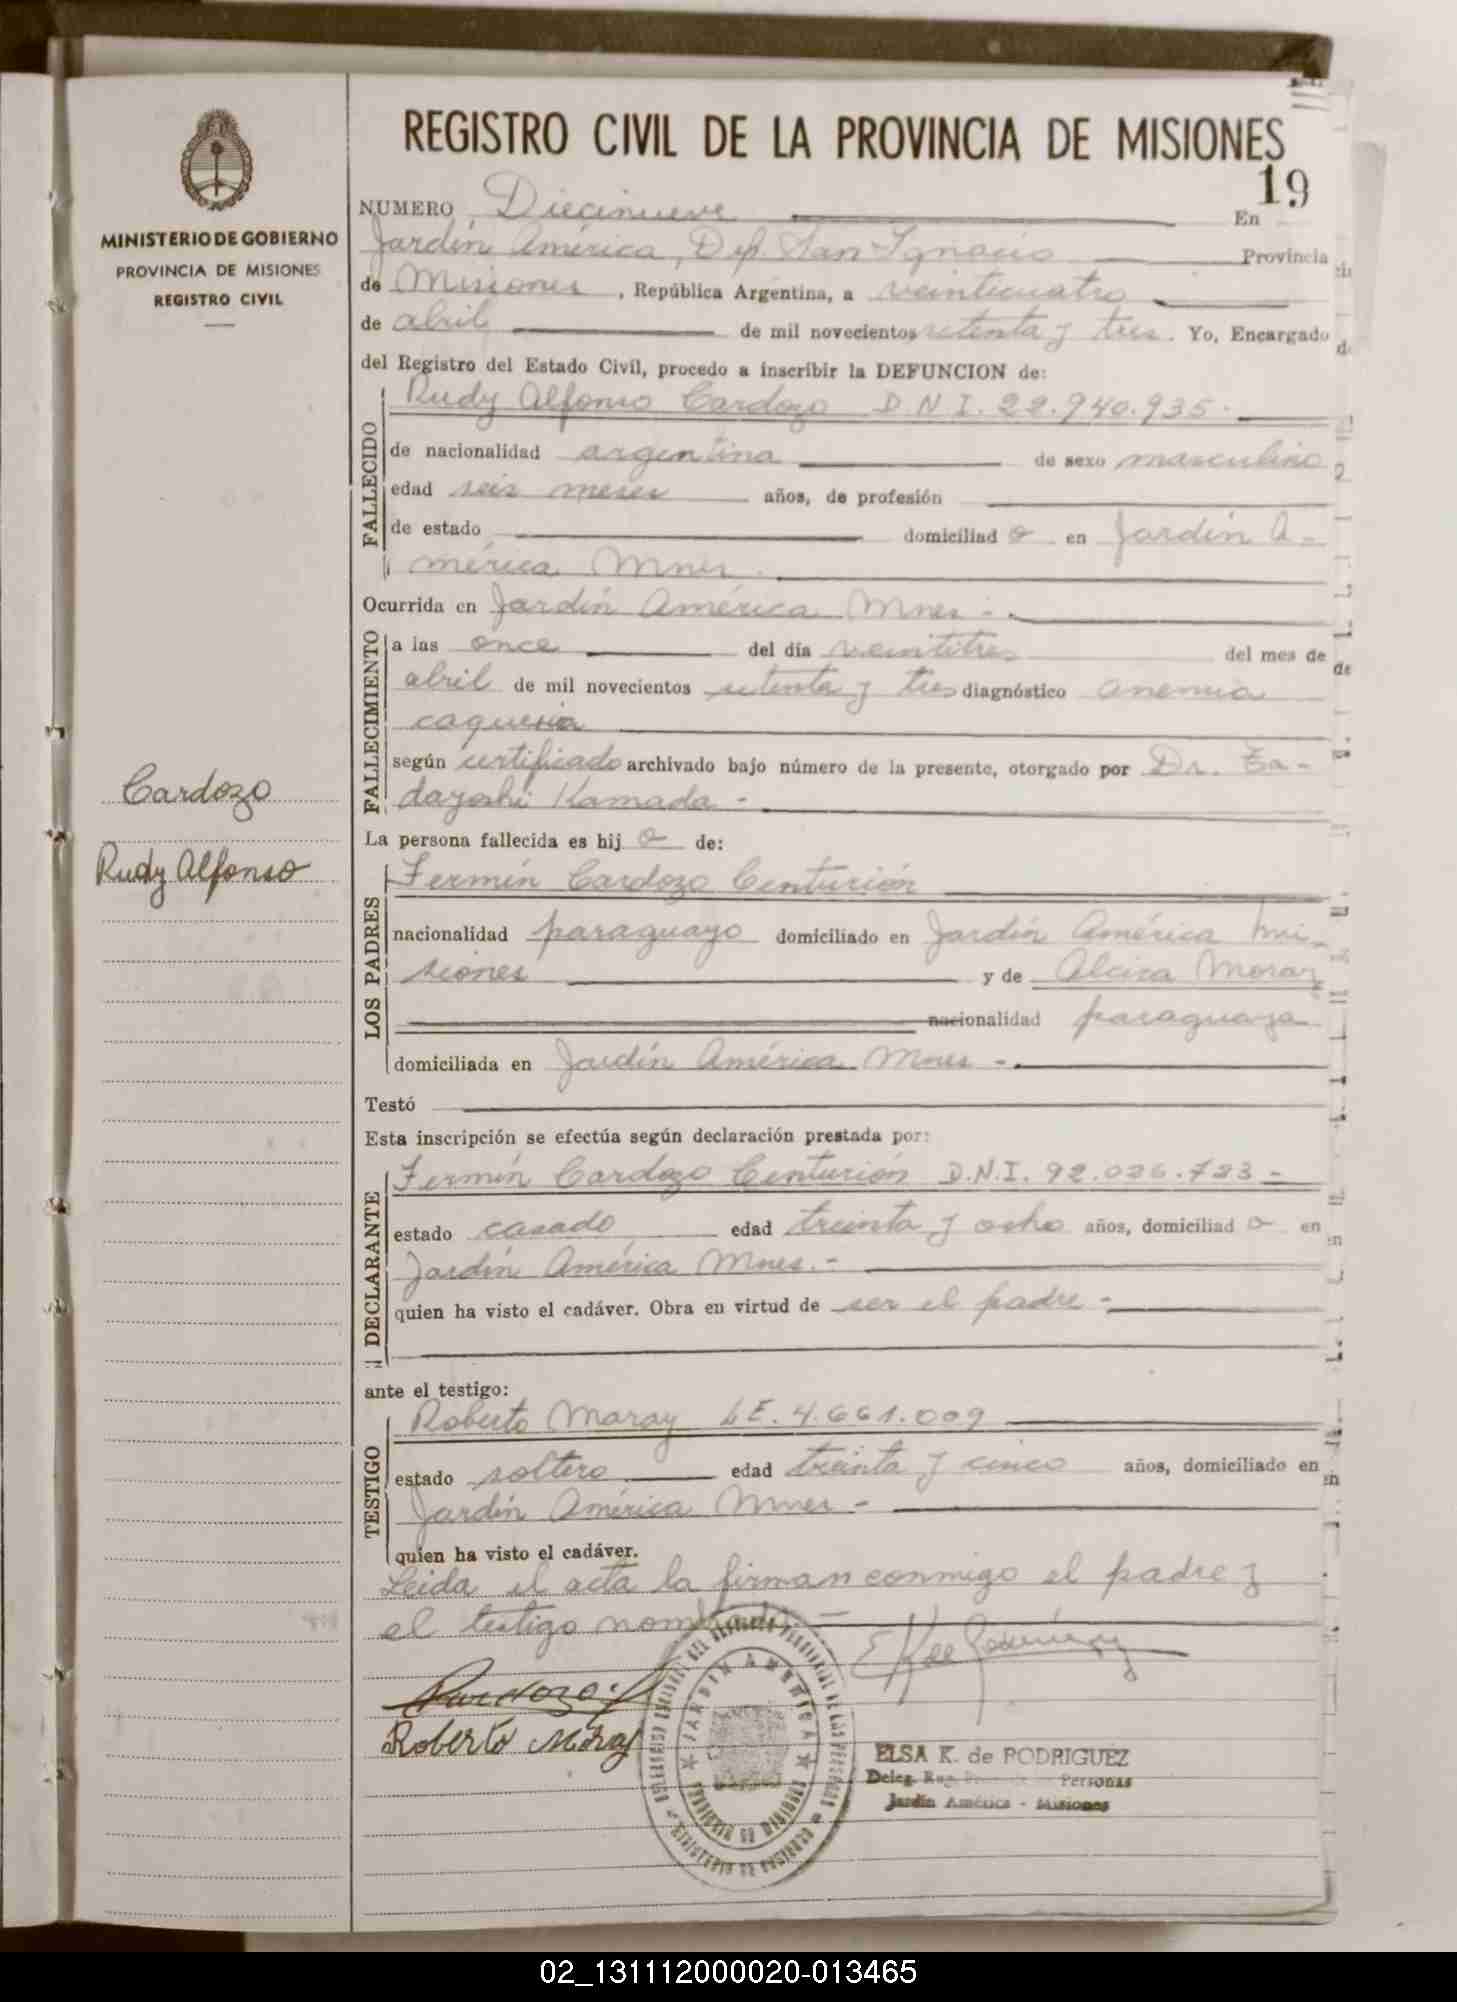 REGISTRO CIVIL DE LA PROVINCIA DE MISIONES
19
MINISTERIO DE GOBIERNO
PROVINCIA DE MISIONES
REGISTRO CIVIL
NUMERO Diecinueve En
Jardín América, Dep. San Ignacio Provincia
de Misiones, República Argentina, a veinticuatro
de abril de mil novecientos setenta y tres. Yo, Encargado
del Registro del Estado Civil, procedo a inscribir la DEFUNCION de:
FALLECIDO
Rudy Alfonso Cardozo D.N.I. 22.940.935.
de nacionalidad argentina de sexo masculino
edad seis meses años, de profesión
de estado domiciliad o en Jardín A-
mérica Mnes.
Ocurrida en Jardín América Mnes -
FALLECIMIENTO
a las once del día veintitres del mes de
abril de mil novecientos setenta y tres diagnóstico anemia
caquexia
según certificado archivado bajo número de la presente, otorgado por Dr. Ta-
dayoshi Kamada -
Cardozo
Rudy Alfonso
La persona fallecida es hij o de:
LOS PADRES
Fermín Cardozo Centurión
nacionalidad paraguayo domiciliado en Jardín América Mi-
siones y de Alcira
nacionalidad paraguaya
domiciliada en Jardín América Mnes -
Testó
Esta inscripción se efectúa según declaración prestada por:
DECLARANTE
Fermín Cardozo Centurión D.N.I. 92.026.723 -
estado casado edad treinta y ocho años, domiciliad o en
Jardín América Mnes. -
quien ha visto el cadáver. Obra en virtud de ser el padre -
ante el testigo:
TESTIGO
Roberto Maray L.E. 4.661.009
estado soltero edad treinta y cinco años, domiciliado en
Jardín América Mnes -
quien ha visto el cadáver.
Leida el acta la firman conmigo el padre y
el testigo nombrado. -
Cardozo
Roberto Maray
JARDIN AMERICA
PROVINCIA DE MISIONES
MINISTERIO DE GOBIERNO
ELSA K. de RODRIGUEZ
Deleg. Reg. Personas
Jardín América - Misiones
02_131112000020-013465